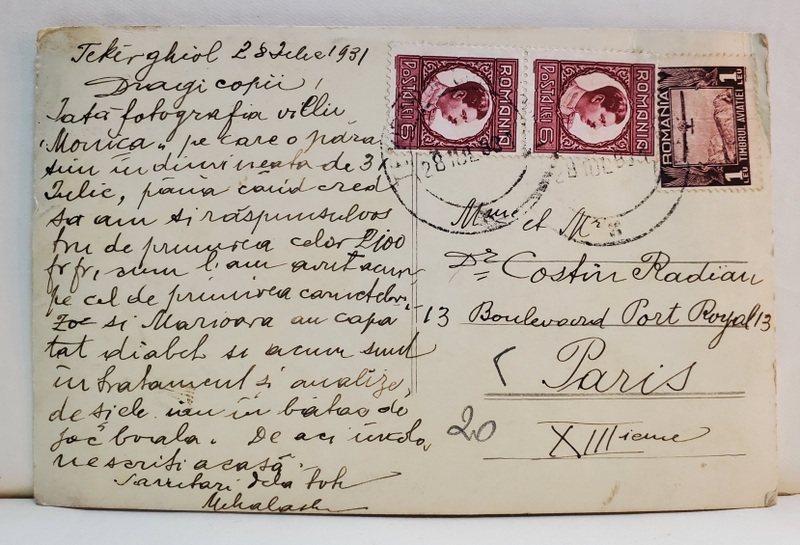 Tekirghiol 28 Iulie 1931
Dragi copii!
Iată fotografia vilii
"Monica" pe care o pără
sim în dimineața de 3
Iulie, până când cred
să am și răspunsul vos
tru de primirea celor 2100
fr fr, cum l'am avut acum
pe cel de primirea carnetelor.
Zoe și Marioara au capa
tat diabet și acum sunt
în tratament și analize,
de și ele iau în bătae de
joc boala. De aci încolo,
ne scriți acasă.
Sarutari dela toți
Mihalache
POSTA 6 LEI 6
ROMANIA
POSTA 6 LEI 6
ROMANIA
ROMANIA
1 LEU
TIMBRUL AVIATIEI
1 LEU
28 IUL 931
28 IUL 931
Mme et Mr
Dr Costin Radian
13 Boulevard Port Royal 13
Paris
XIIIieme
20